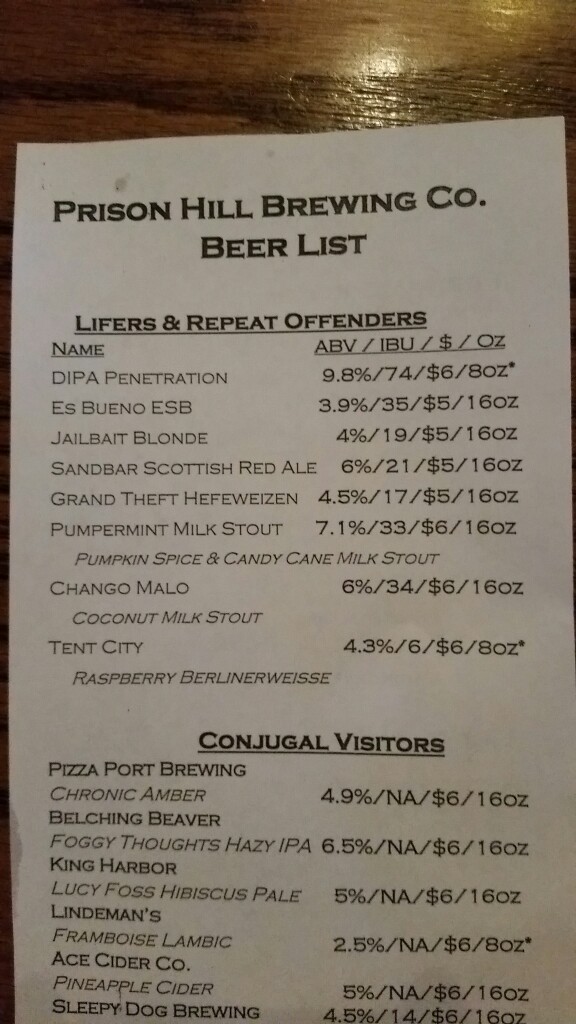 PRISON HILL BREWING CO.
BEER LIST
LIFERS & REPEAT OFFENDERS
NAME ABV / IBU / $ / OZ
DIPA PENETRATION 9.8%/74/$6/8OZ*
ES BUENO ESB 3.9%/35/$5/16OZ
JAILBAIT BLONDE 4%/19/$5/16OZ
SANDBAR SCOTTISH RED ALE 6%/21/$5/16OZ
GRAND THEFT HEFEWEIZEN 4.5%/17/$5/16OZ
PUMPERMINT MILK STOUT 7.1%/33/$6/16OZ
PUMPKIN SPICE & CANDY CANE MILK STOUT
CHANGO MALO 6%/34/$6/16OZ
COCONUT MILK STOUT
TENT CITY 4.3%/6/$6/8OZ*
RASPBERRY BERLINERWEISSE
CONJUGAL VISITORS
PIZZA PORT BREWING
CHRONIC AMBER 4.9%/NA/$6/16OZ
BELCHING BEAVER
FOGGY THOUGHTS HAZY IPA 6.5%/NA/$6/16OZ
KING HARBOR
LUCY FOSS HIBISCUS PALE 5%/NA/$6/16OZ
LINDEMAN'S
FRAMBOISE LAMBIC 2.5%/NA/$6/8OZ*
ACE CIDER CO.
PINEAPPLE CIDER 5%/NA/$6/16OZ
SLEEPY DOG BREWING 4.5%/14/$6/16OZ